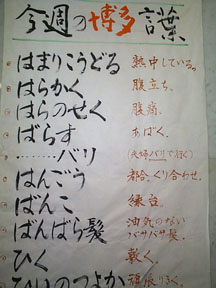 今週の博多言葉
はまりこうどる 熱中している。
はらかく 腹立ち、
はらのせく 腹痛、
ばらす あばく、
………バリ (夫婦バリで行く)
はんごう 都合、くり合わせ、
ばんこ 縁台、
ばんばら髪 油気のないバサバサ髪、
ひく 乾く、
ひいのつよか 頑張りきく、